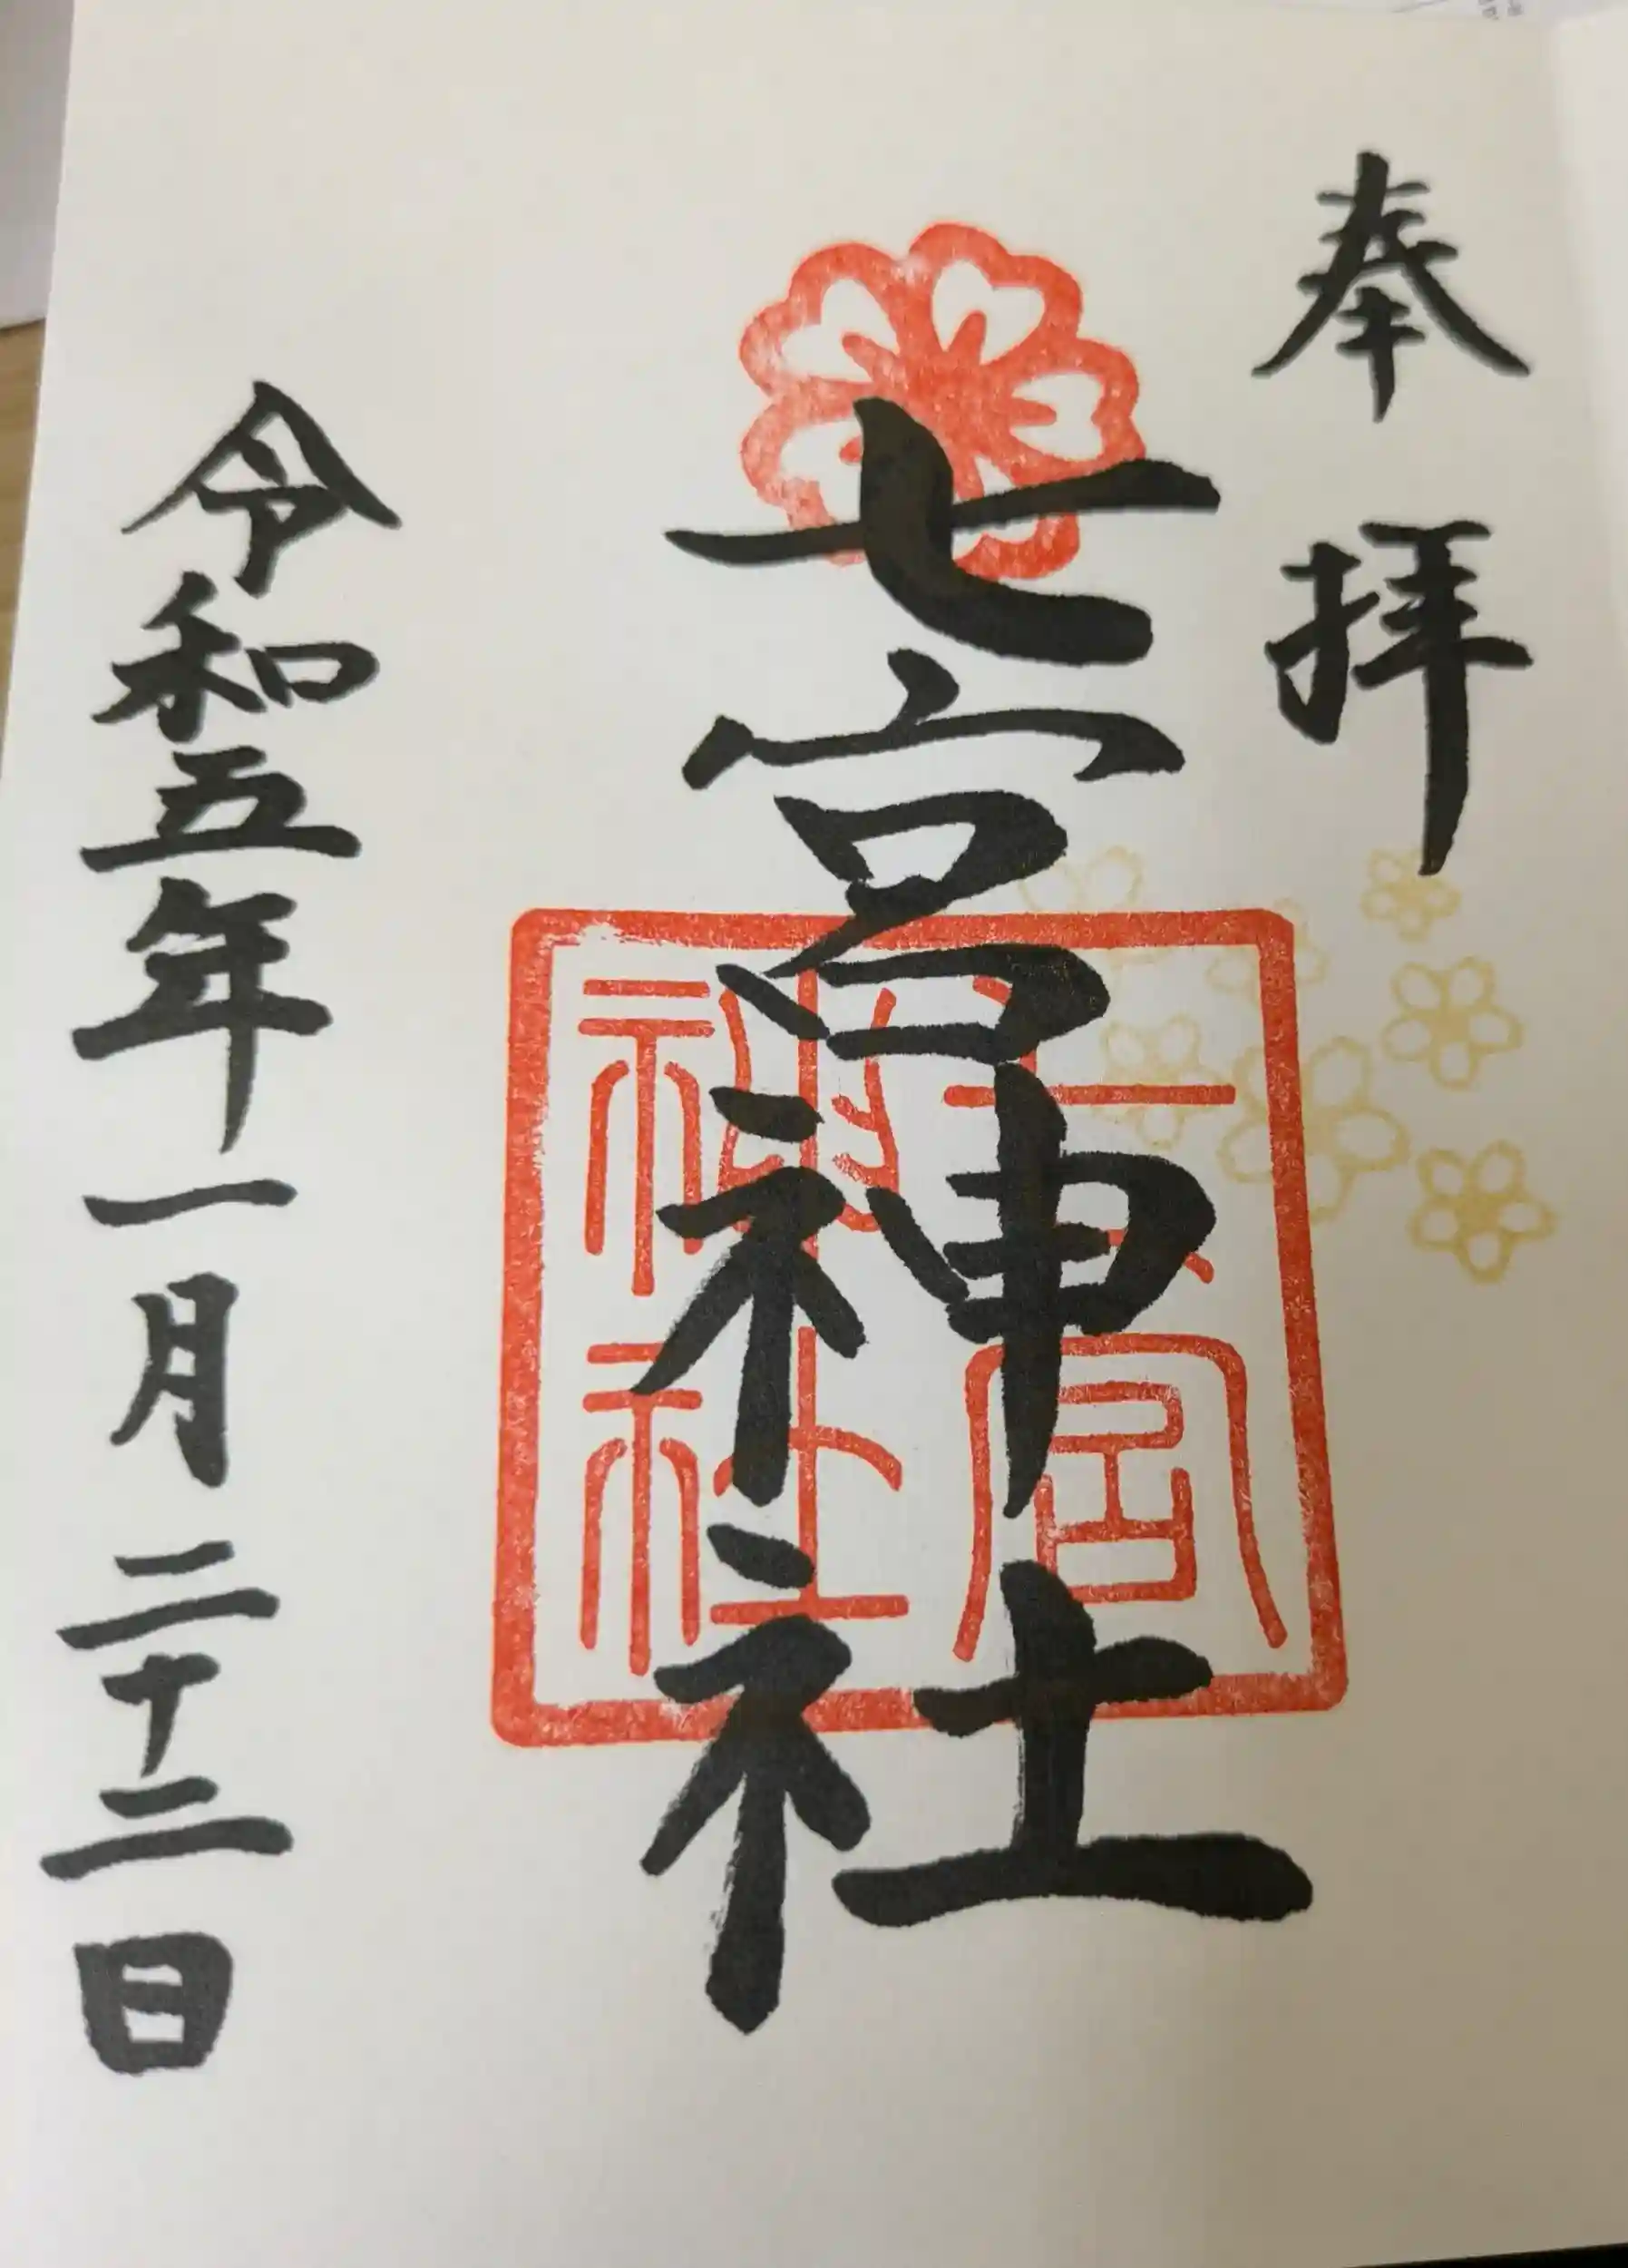 奉拝
七宮神社
七宮
神社
令和五年一月二十二日